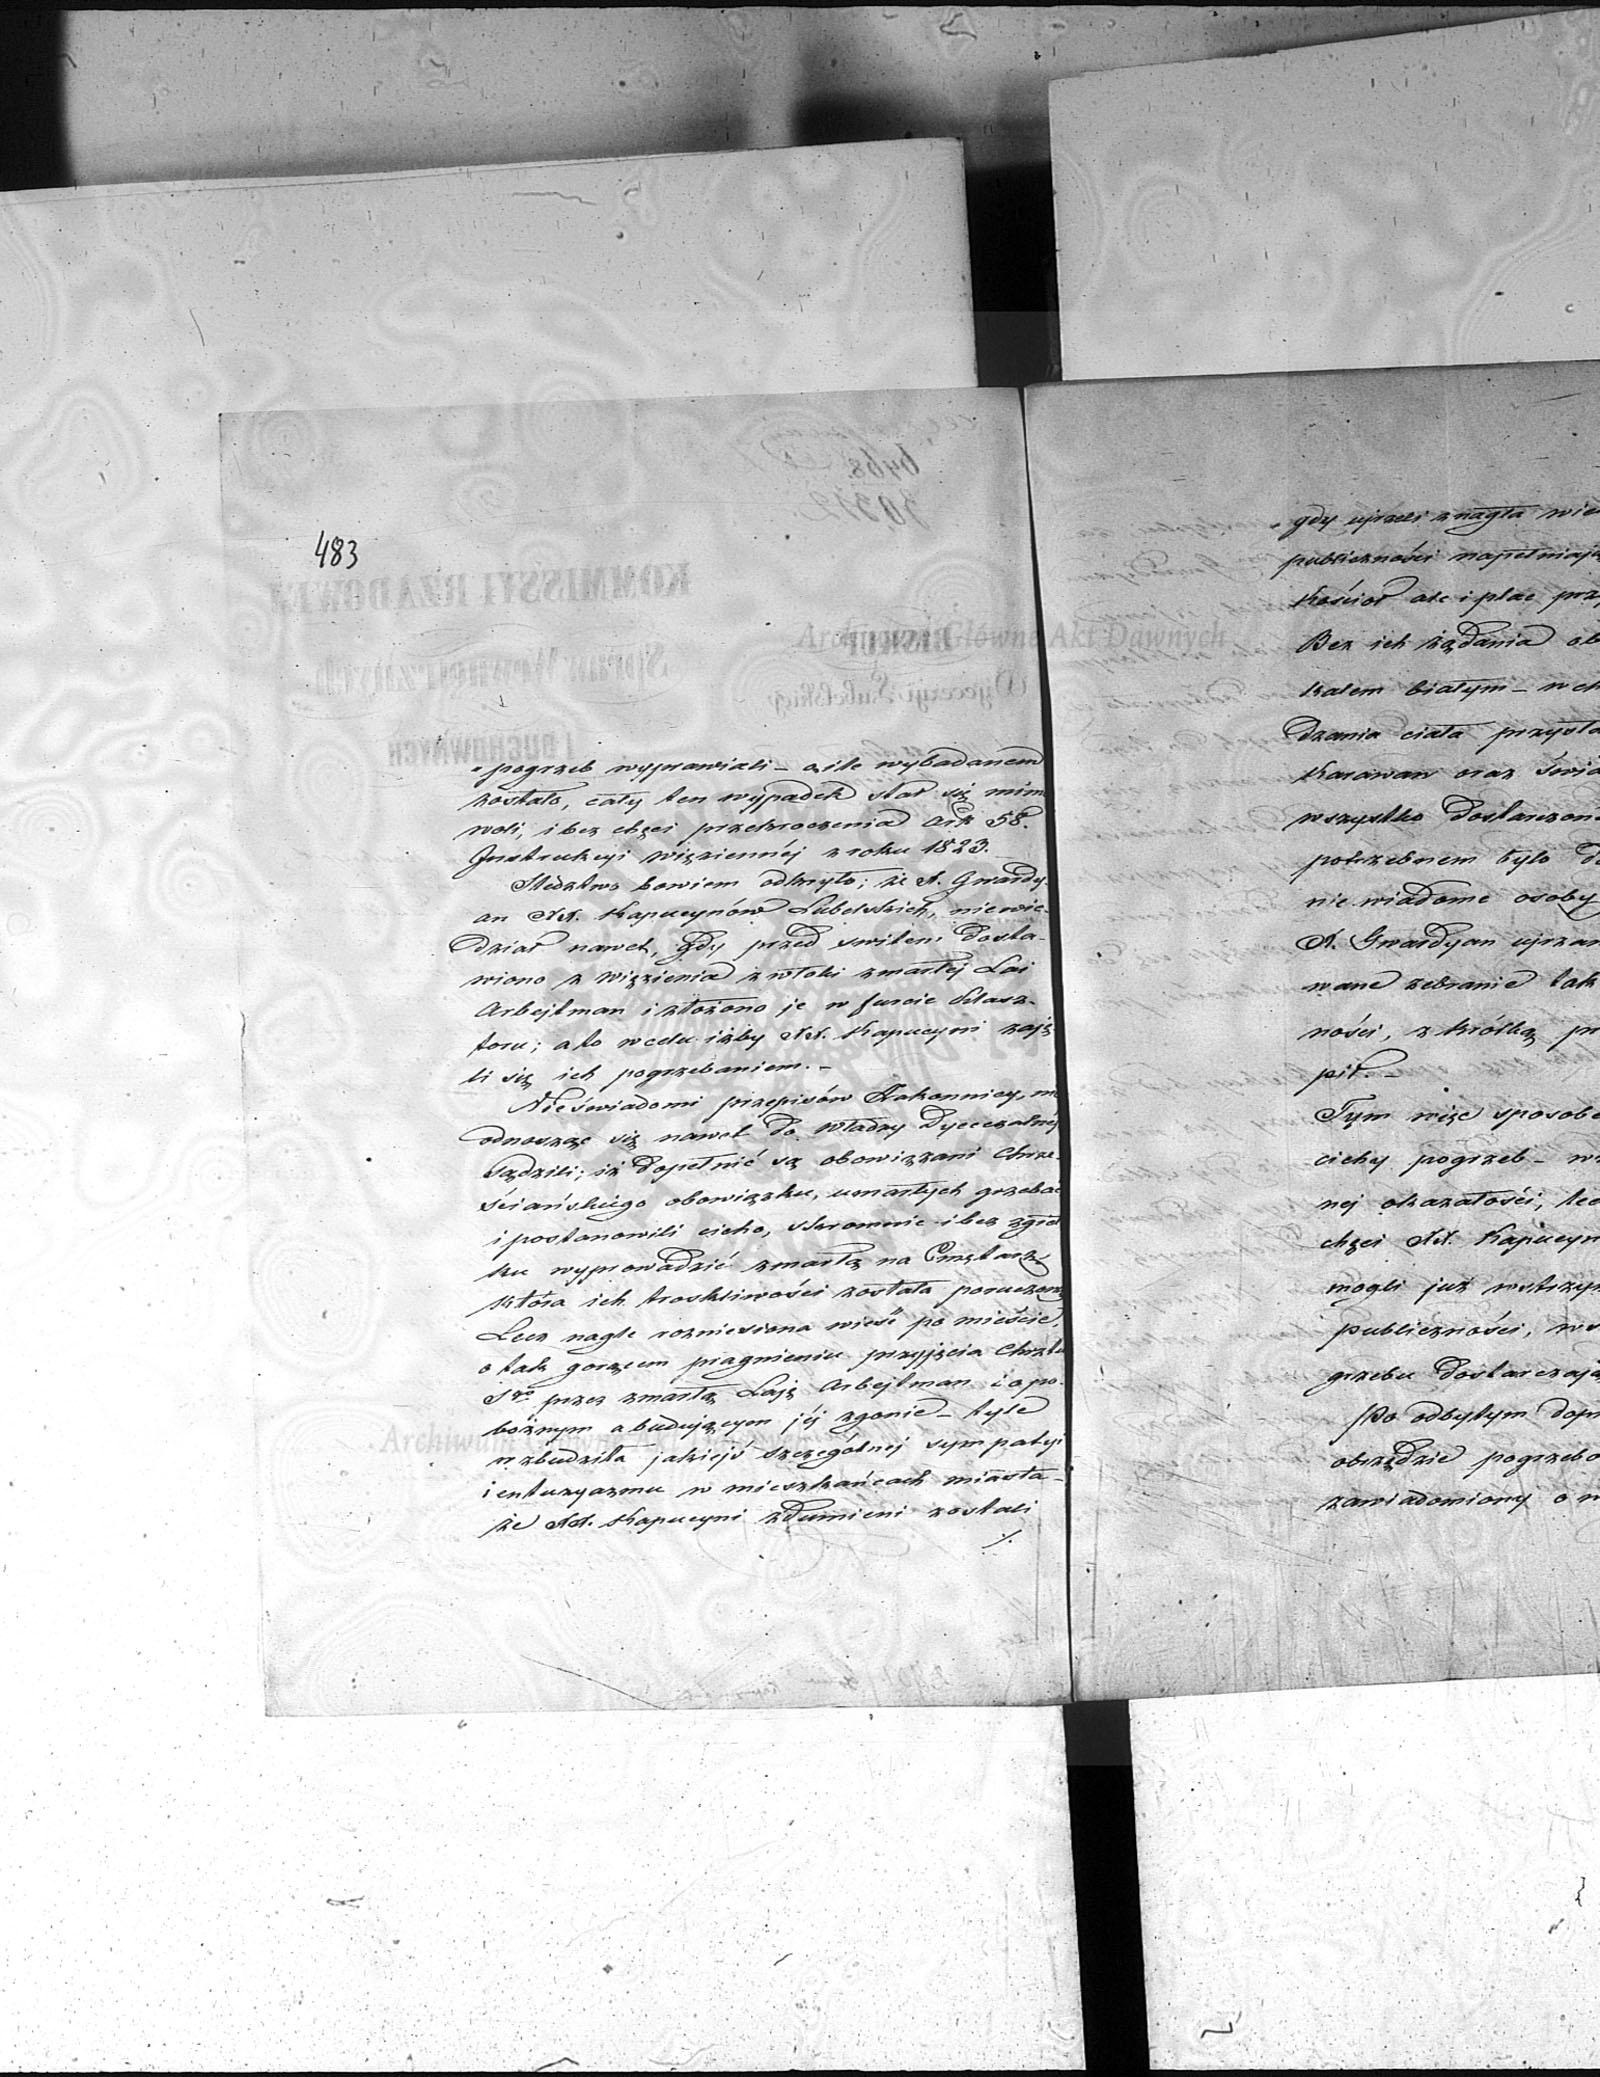 483
pogrzeb wyprawiali – o ile wybadanem
zostało, cały ten wypadek stał się mimo
woli, i bez chęci przekroczenia Art 58.
Instrukcyi Więziennéj z roku 1823.
Śledztwo bowiem odkryło; że X. Gwardy-
an XX. Kapucynów Lubelskich, niewie-
dział nawet, gdy przed świtem dosta-
wiono z Więzienia zwłoki zmarłéj Lai
Arbejtman i złożono je w furcie klasz-
toru; a to w celu iżby XX. Kapucyni zaję-
li się ich pogrzebaniem. –
Nieświadomi przepisów Zakonnicy, nie
odnosząc się nawet do Władzy Dyecezalnéj
sądzili; iż dopełnić są obowiązani Chrze-
ściańskiego obowiązku, umarłych grzebać
i postanowili cicho, skromnie i bez zgieł
ku wyprowadzić zmarłą na Cmętarz
która ich troskliwości została poruczoną
Lecz nagle rozniesiona wieść po mieście,
o tak gorącem pragnieniu przyjęcia Chrztu
Sgo przez zmarłą Lają Arbejtman i o po-
bożnym a budującym jéj zgonie – tyle
wzbudziła jakiejś szczególnéj sympatyi
i entuzyazmu w mieszkańcach miasta –
że XX. Kapucyni zdumieni zostali
./.
gdy ujrzeli z nagła wie
publiczności napełniają
Kościoł ale i plac prz
Bez ich żądania ob
kalem białym – w ch
dzania ciała przysta
Karawan oraz świa
wszystko dostarczon
potrzebnem było d
nie wiadome osoby
X. Gwardyan ujrza
wane zebranie tak
ności, z krótką pr
pił. –
Tym więc sposobe
cichy pogrzeb – w
néj okazałości, lec
chęci XX. Kapucyn
mogli już wstrzym
publiczności, ws
grzebu dostarczają
Po odbytym dop
obrzędzie pogrzebo
zawiadomiony o
Archiwum Główne Akt Dawnych